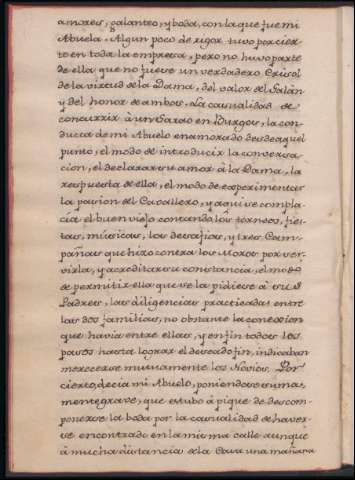 amores, galanteo, y boda, con la que fue mi
Abuela. Algun poco de rigor tuvo por cier-
to en toda la empresa, pero no huvo parte
de ella que no fuese un verdadero Crisol
de la virtud de la Dama, del valor del Galàn
y del honor de ambos. La casualidad de
concurrir à un Sarao en Burgos, la con-
ducta de mi Abuelo enamorado desde aquel
punto, el modo de introducir la conversa-
cion, el declarar su amor à la Dama, la
respuesta de ella, el modo de experimentar
la pasion del Cavallero, y aqui se compla-
cia el buen viejo contando los torneos, fies-
tas, músicas, los desafios, y tres Cam-
pañas que hizo contra los Moros por ser-
virla, y acreditar su constancia, el modo
de permitir ella que se la pidiese à sus
Padres, las diligencias practicadas entre
las dos familias, no obstante la conexion
que havia entre ellas, y en fin todos los
pasos hasta lograr el deseado fin, indicaban
merecerse mutuamente los Novios. Por
cierto, decia mi Abuelo, poniendose suma-
mente grave, que estubo à pique de descom-
ponerse la boda por la casualidad de haver-
se encontrado en la misma calle aunque
à mucha distancia de la Casa una mañana